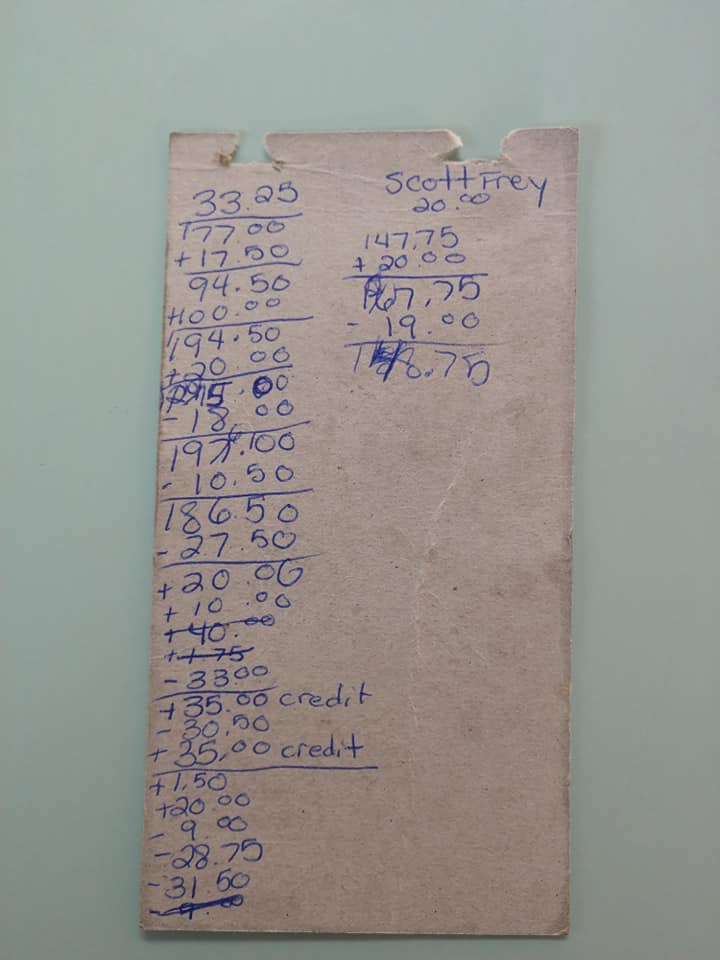 33.25
177.00
+17.50
94.50
+100.00
194.50
+20 00
- 18 00
197.00
- 10.50
186.50
- 27.50
+20.00
+ 10.00
+ 40.00
+ 1.75
- 33 00
+35.00 credit
- 30.50
+ 35.00 credit
+1.50
+20.00
- 9.00
-28.75
-31.50
- 9.00
Scott Frey
20.00
147.75
+ 20.00
167.75
- 19.00
148.75